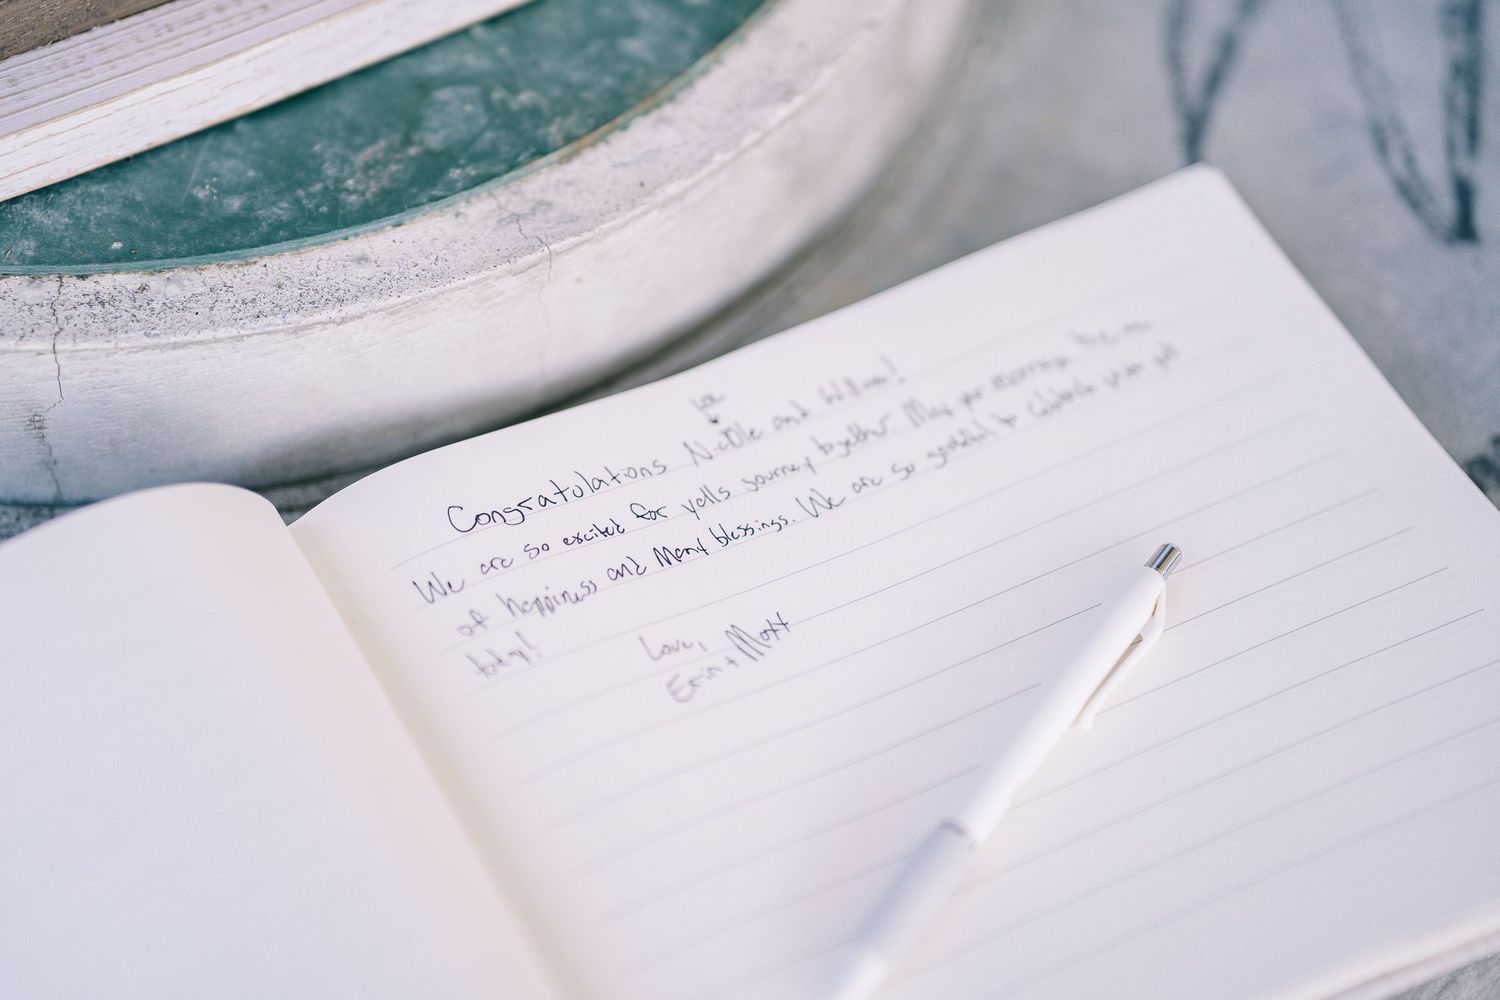 Congratulations Nicole and
We are so excited for yalls journey together. May your marriage be
of happiness and Many blessings. We are so grateful to celebrate with you
today!
Love,
Erin + Matt